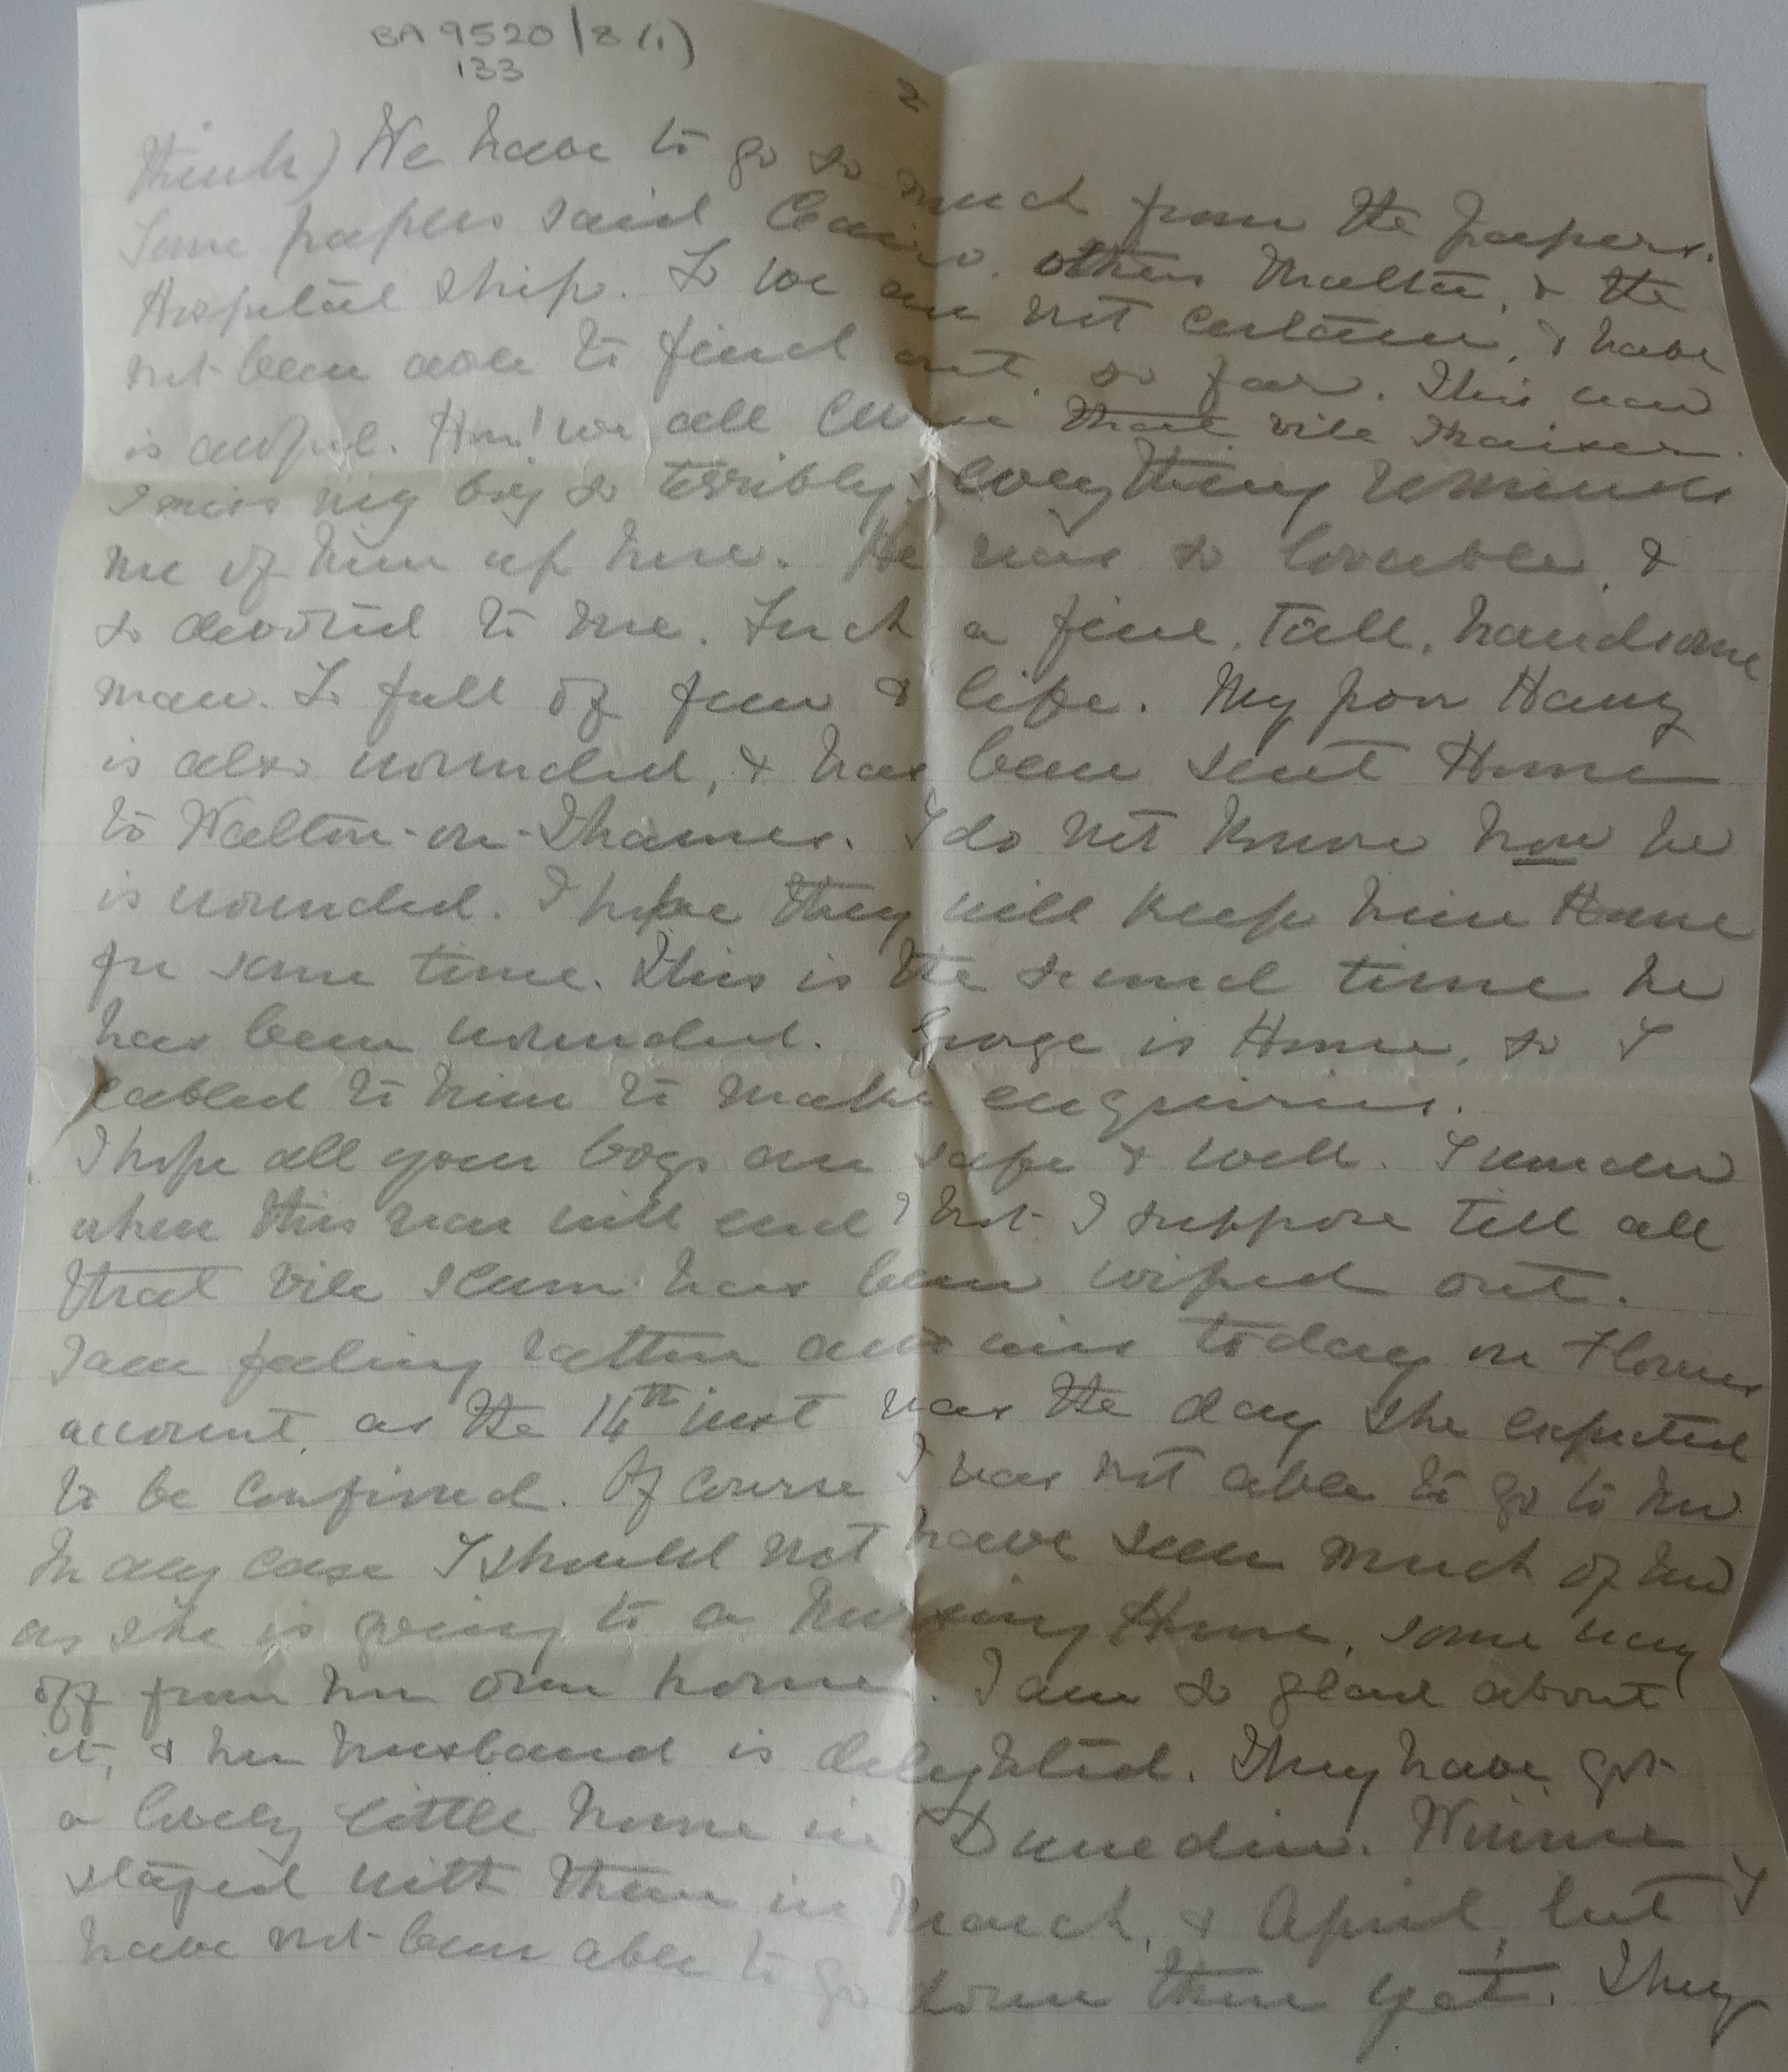 BA 9520/8(i)
133
2
think) We have to go so much from the papers.
Some papers said Cairo, others Malta, & the
Hospital ship. So we are not certain, & have
not been able to find out, so far. This war
is awful. How! we all curse that vile Kaiser.
I miss my boy so terribly, everything reminds
me of him up here. He was so lovable, &
so devoted to me. Such a fine, tall, handsome
man. So full of fun & life. My poor Harry
is also wounded, & has been sent Home
to Walton-on-Thames. I do not know how he
is wounded. I hope they will keep him Home
for some time. This is the second time he
has been wounded. George is Home, so I
cabled to him to make enquiries.
I hope all your boys are safe & well. I wonder
when this war will end? Not I suppose till all
that vile scum has been wiped out.
I am feeling rather anxious today on Flories
account, as the 14th inst was the day she expected
to be confined. Of course I was not able to go to her
In any case I should not have seen much of her
as she is going to a Nursing Home, some way
off from her own home. I am so glad about
it, & her husband is delighted. They have got
a lovely little home in Dunedin. Winnie
stayed with them in March, & April, but I
have not been able to go down there yet. They